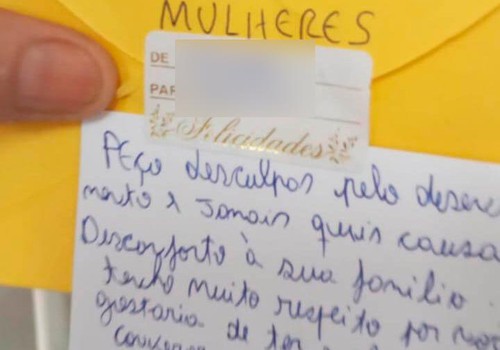 MULHERES
DE
PAR
Felicidades
Peço desculpas pelo desen
mento e Jamais quis causa
Desconforto à sua familia.
tenho muito respeito por
gostaria de ter
conver